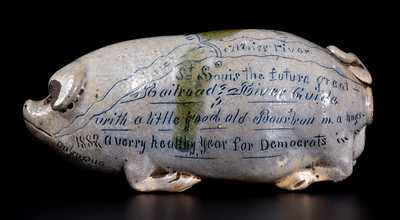 River
St Louis the future great
Railroad & River Guide
with a little good old Bourbon in a hogs
1882 a verry healthy Year for Democrats in